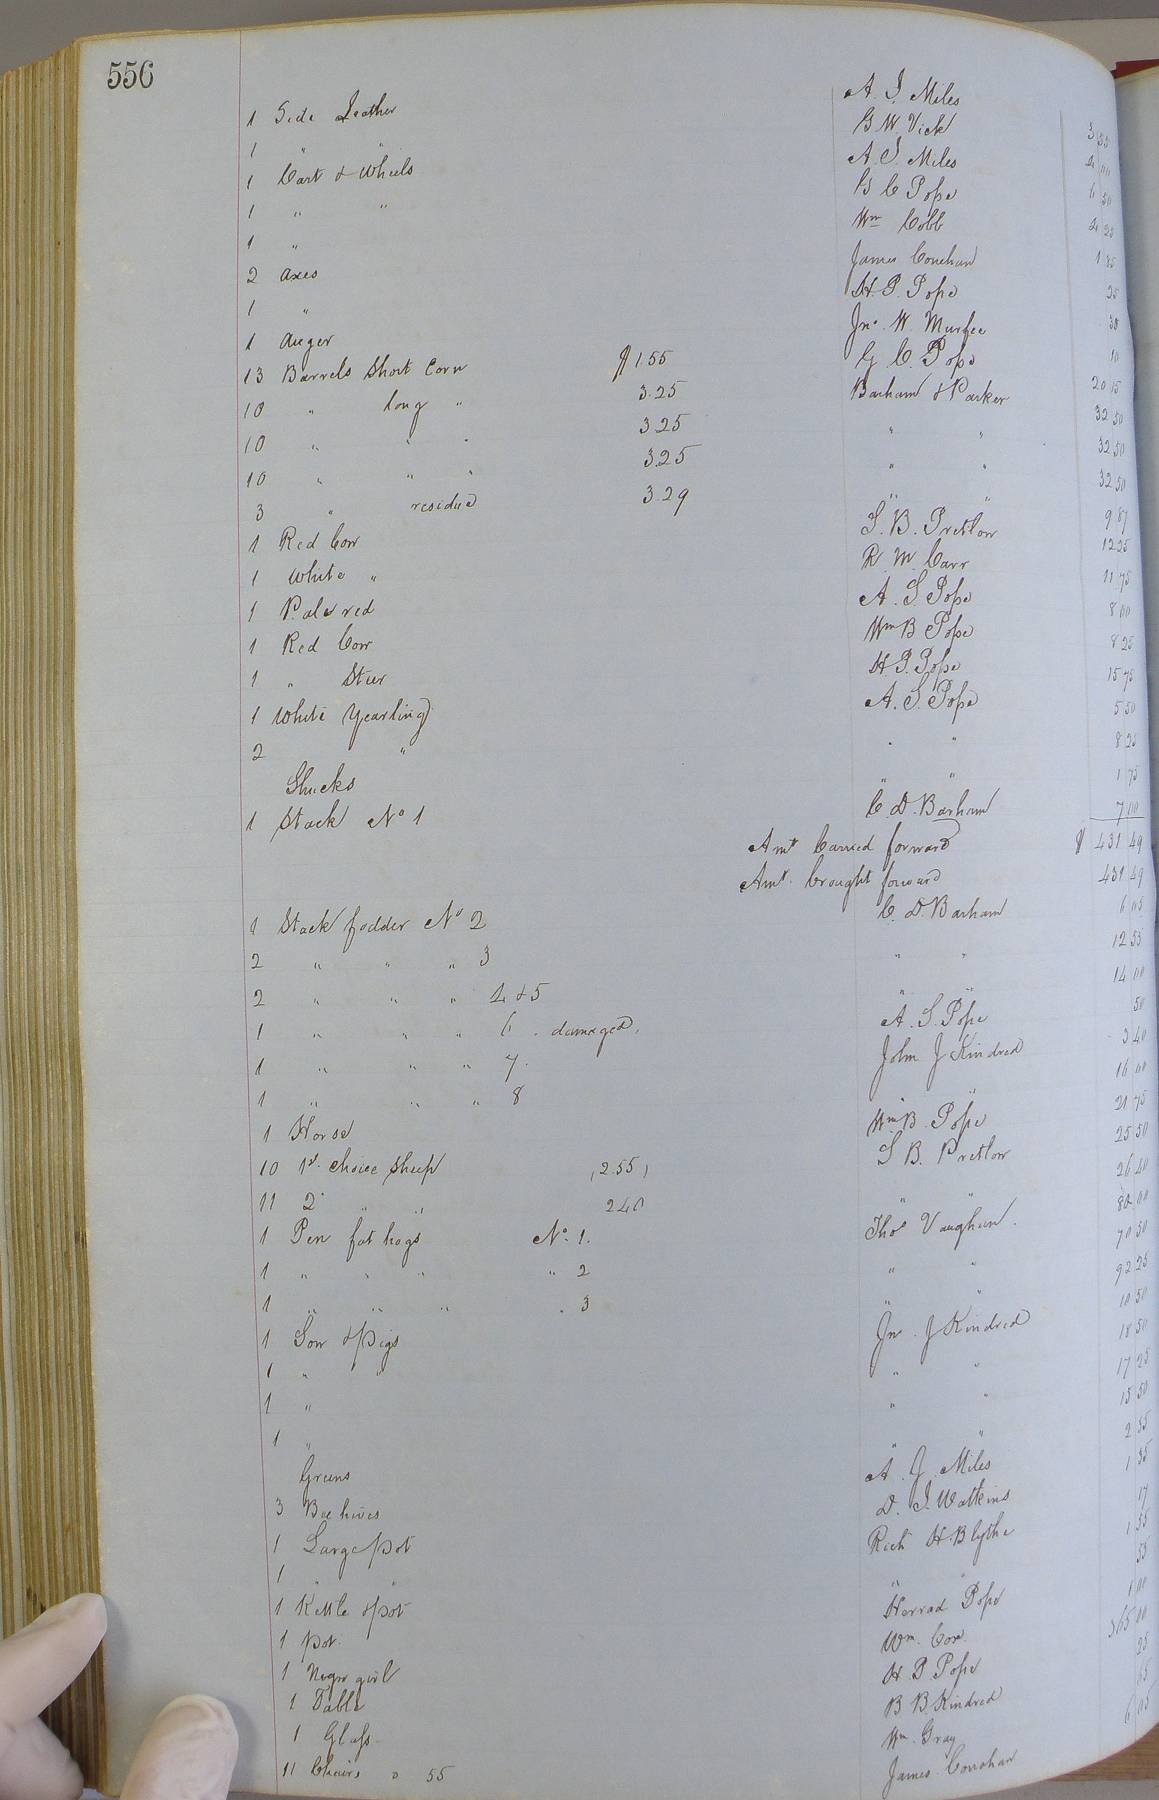 556
1 Side Leather A. J. Miles 3 50
1 " " B W. Vick 2 00
1 Cart & Wheels A. J. Miles 6 50
1 " " G C Pope 2 25
1 " Wm Cobb 1 85
2 axes James Conehan 25
1 " H. P. Pope 30
1 Auger Jno. W. Murfee 10
13 Barrels Short Corn $1.55 G C. Pope 20 15
10 " long " 3.25 Barham & Parker 32 50
10 " " " 3.25 " " 32 50
10 " " " 3.25 " " 32 50
3 " residue 3.29 " " 9 87
1 Red Cow S. B. Pretlow 12 25
1 White " R. M. Carr 11 75
1 Pale red A. S. Pope 8 00
1 Red Cow Wm B Pope 8 25
1 " Steer H P. Pope 15 75
1 White Yearling A. S. Pope 5 50
2 " " " 8 25
Shucks " " 1 75
1 Stack No 1 C. D. Barham 7 00
Amt Carried forward $ 431 49
Amt. brought forward 431 49
1 Stack fodder No 2 C. D. Barham 6 05
2 " " " 3 " " 12 55
2 " " " 4 & 5 " " 14 00
1 " " " 6 . damaged. A. S. Pope 50
1 " " " 7. John J Kindred 3 40
1 " " " 8 " " 16 00
1 Horse Wm B. Pope 21 75
10 1st. choice Sheep (2.55) S B. Pretlow 25 50
11 2d " " 2.40 " " 26 40
1 Pen fat hogs No. 1. Thos Vaughan. 80 00
1 " " " " 2 " " 70 50
1 " " " " 3 " " 92 25
1 Sow & Pigs Jno. J Kindred 10 50
1 " " " " 18 50
1 " " " 17 25
1 " " " 15 50
Greens A. J. Miles 2 55
3 Bee hives D. J. Watkins 1 35
1 Large pot Rich H. Blythe 17
1 " " " " 1 55
1 Kettle & pot Herrad Pope 55
1 pot. Wm. Cox. 1 00
1 Negro girl H P Pope 365 00
1 Table B B. Kindred 25
1 Glass Wm. Gray 65
11 Chairs @ 55 James Conohan 6 05